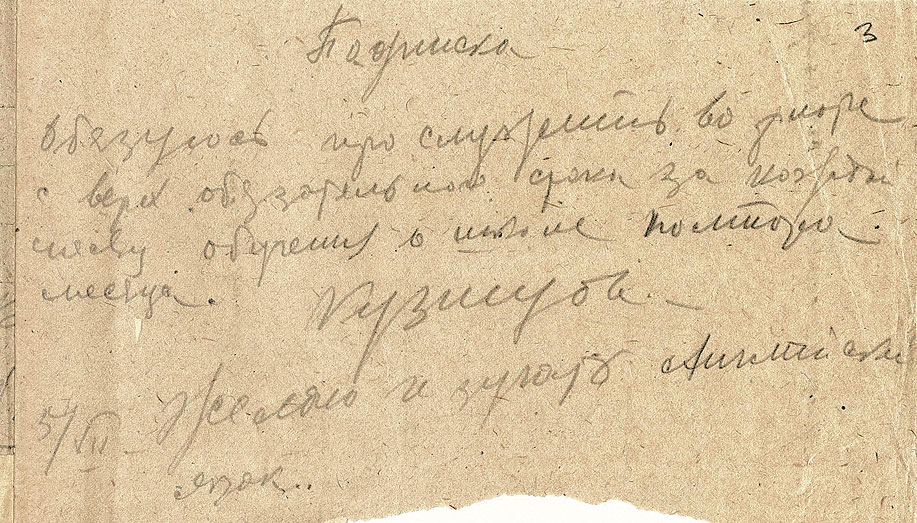 3
Подписка
Обязуюсь прослужить во флоте
с верх обязательного срока за каждый
месяц обучения в школе полтора
месяца.
Кузнецов
Желаю изучать Английский
5/VII
язык..